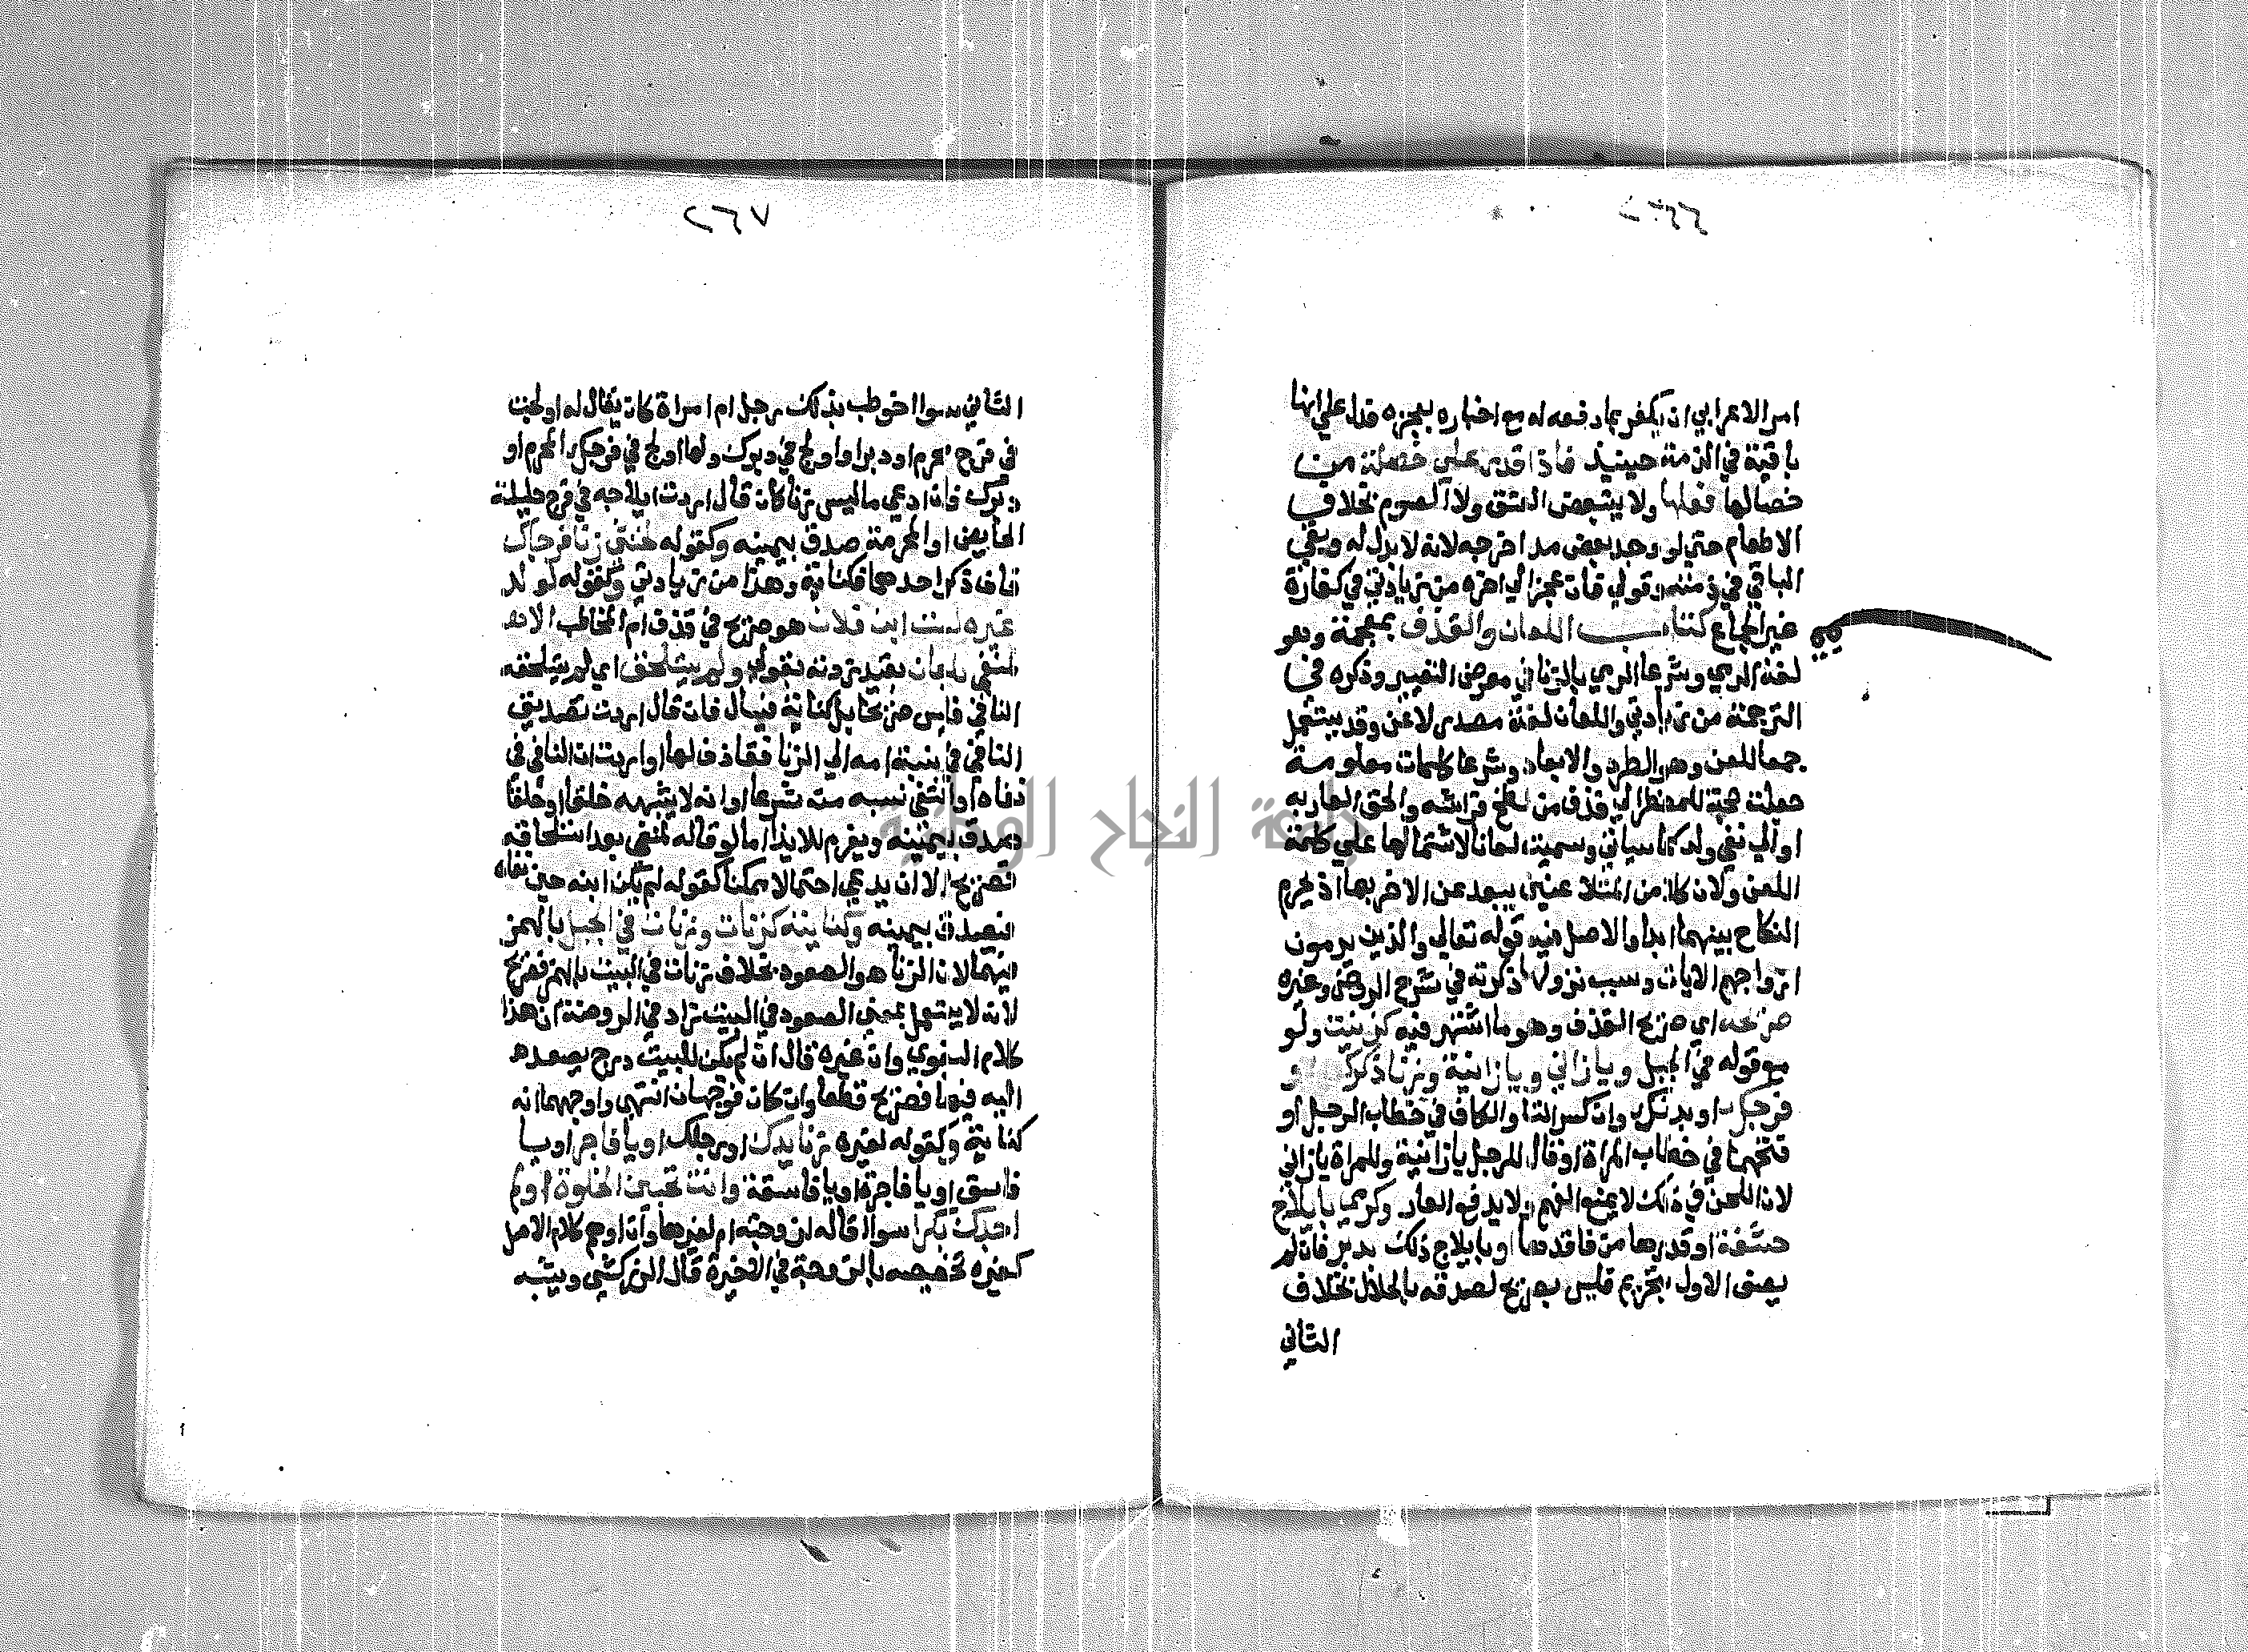 ٢٦٦
امر الاعرابي ان يكفر بما دفعه له مع اخباره بعجزه فدل علي انها
باقية في الذمة حينيذ فاذا قدر علي خصلة من
خصالها فعلها ولا يتبعض العتق ولا الصوم بخلاف
الاطعام حتي لو وجد بعض مد اخرجه لانه لا بدل له وبقي
الباقي في ذمته وقولي فان عجز الي اخره من زيادتي في كفارة
غير الجماع كتاب اللعان والقذف بمعجمة وهو
لغة الرمي وشرعا الرمي بالزنا في معرض التعيير وذكره في
الترجمة من زيادتي واللعان لغة مصدر لاعن وقد يستعمل
جمعا للعن وهو الطرد والابعاد وشرعا كلمات معلومة
جعلت حجة للمضطر الي قذف من لطخ فراشه والحق العار به
او الي نفي ولد كما سياتي وسميت لعانا لاشتمالها علي كلمة
اللعن ولان كلا من المتلاعنين يبعد عن الاخر بها اذ يحرم
النكاح بينهما ابدا والاصل فيه قوله تعالي والذين يرمون
ازواجهم الايات وسبب نزولها ذكرته في شرح الروض وغيره
صريحه اي صريح القذف وهو ما اشتهر فيه كزنيت ولو
مع قوله في الجبل ويا زاني ويا زانية وزنا ذكرك او
فرجك او بدنك وان كسر التا والكاف في خطاب الرجل او
فتحهما في خطاب المراة او قال للرجل يا زانية وللمراة يا زاني
لان اللحن في ذلك لا يمنع الفهم ولا يدفع العار وكرمي بايلاج
حشفة او قدرها من فاقدها او بايلاج ذلك بدبر فان لم
يصف الاول بتحريم فليس بصريح لصدقه بالحلال بخلاف
الثاني
٢٦٧
الثاني سوا خوطب بذلك رجل ام امراة كان يقال له اولجت
في فرج محرم او دبر او اولج في دبرك ولها اولج في فرجك المحرم او
دبرك فان ادعي ما ليس زنا كان قال اردت ايلاجه في فرج حليلته
الحايض او المحرمة صدق بيمينه وكقوله لخنثي زنا فرجاك
فان ذكر احدهما فكناية وهذا من زيادتي وكقوله لولد
غيره لست ابن فلان هو صريح في قذف ام المخاطب الا
لمنفي بلعان بقيد زدته بقولي ولم يستلحق اي لم يستلحقه
النافي فليس صريحا بل كناية فيسال فان قال اردت تصديق
النافي في نسبة امه الي الزنا فقاذف لها او اردت ان النافي
نفاه او انتفي نسبه منه شرعا او انه لا يشبهه خلقا او خلقا
صدق بيمينه ويعزر للايذا اما لو قاله لمنفي بعد استلحاقه
فصريح الا ان يدعي احتمالا ممكنا كقوله لم يكن ابنه حين نفاه
فيصدق بيمينه وكنايته كزنات وزنات في الجبل بالهمز
فيهما لان الزنا هو الصعود بخلاف زنات في البيت بالهمز فصريح
لانه لا يستعمل بمعني الصعود في البيت زاد في الروضة ان هذا
كلام البغوي وان غيره قال ان لم يكن للبيت درج يصعد
اليه فيها فصريح قطعا وان كان فوجهان انتهي واوجههما انه
كناية وكقوله لغيره زنا يدك او رجلك او يا فاجر او يا
فاسق او يا فاجرة او يا فاسقة وانت تحبين الخلوة او لم
اجدك بكرا سوا قاله لزوجته ام لغيرها وان اوهم كلام الاصل
كغيره تخصيصه بالزوجة في الاخيرة قال الزركشي ويشبه
جامعة النجاح الوطنية